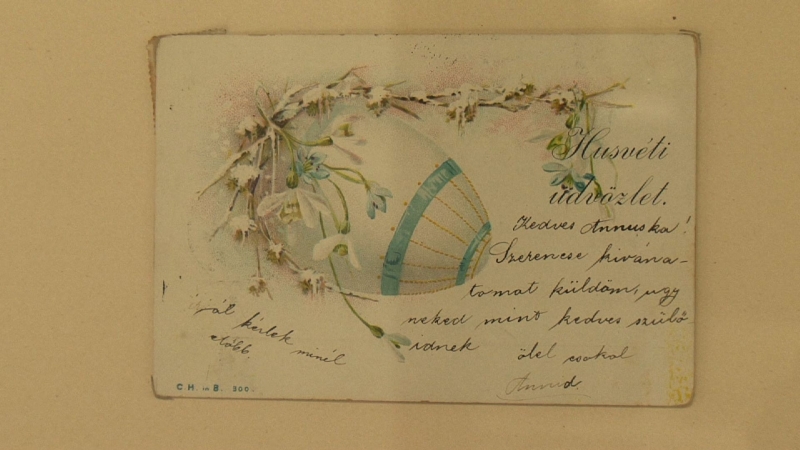 Husvéti
üdvözlet.
Kedves Annuska!
Szerencse kivána-
tomat küldöm, ugy
neked mint kedves szülő-
idnek
ölel csokol
kérlek minél
előbb.
C.H. in B. 300.